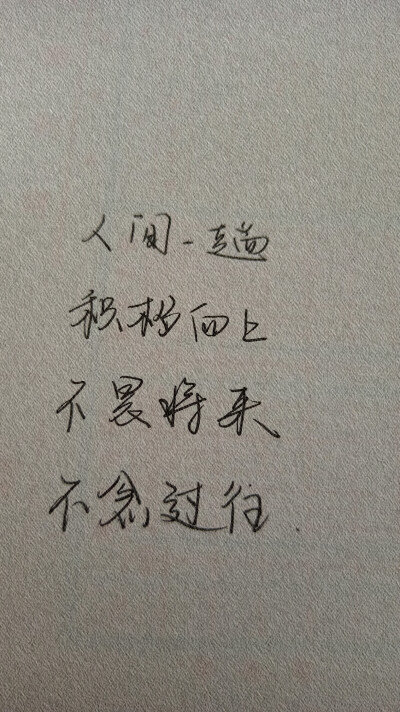 人间一趟
积极向上
不畏将来
不念过往.